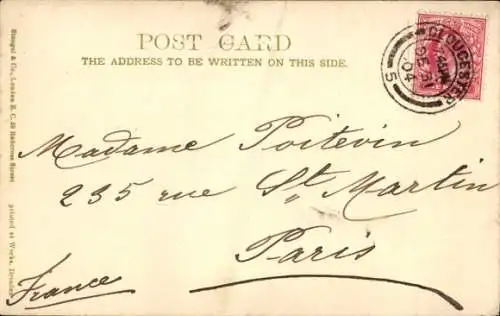 POST CARD
THE ADDRESS TO BE WRITTEN ON THIS SIDE.
GLOUCESTER
DE 31
04
5
Madame Poitevin
235 rue St. Martin
Paris
France
Stengel & Co., London E. C. 39 Redcross Street
printed at Works, Dresden